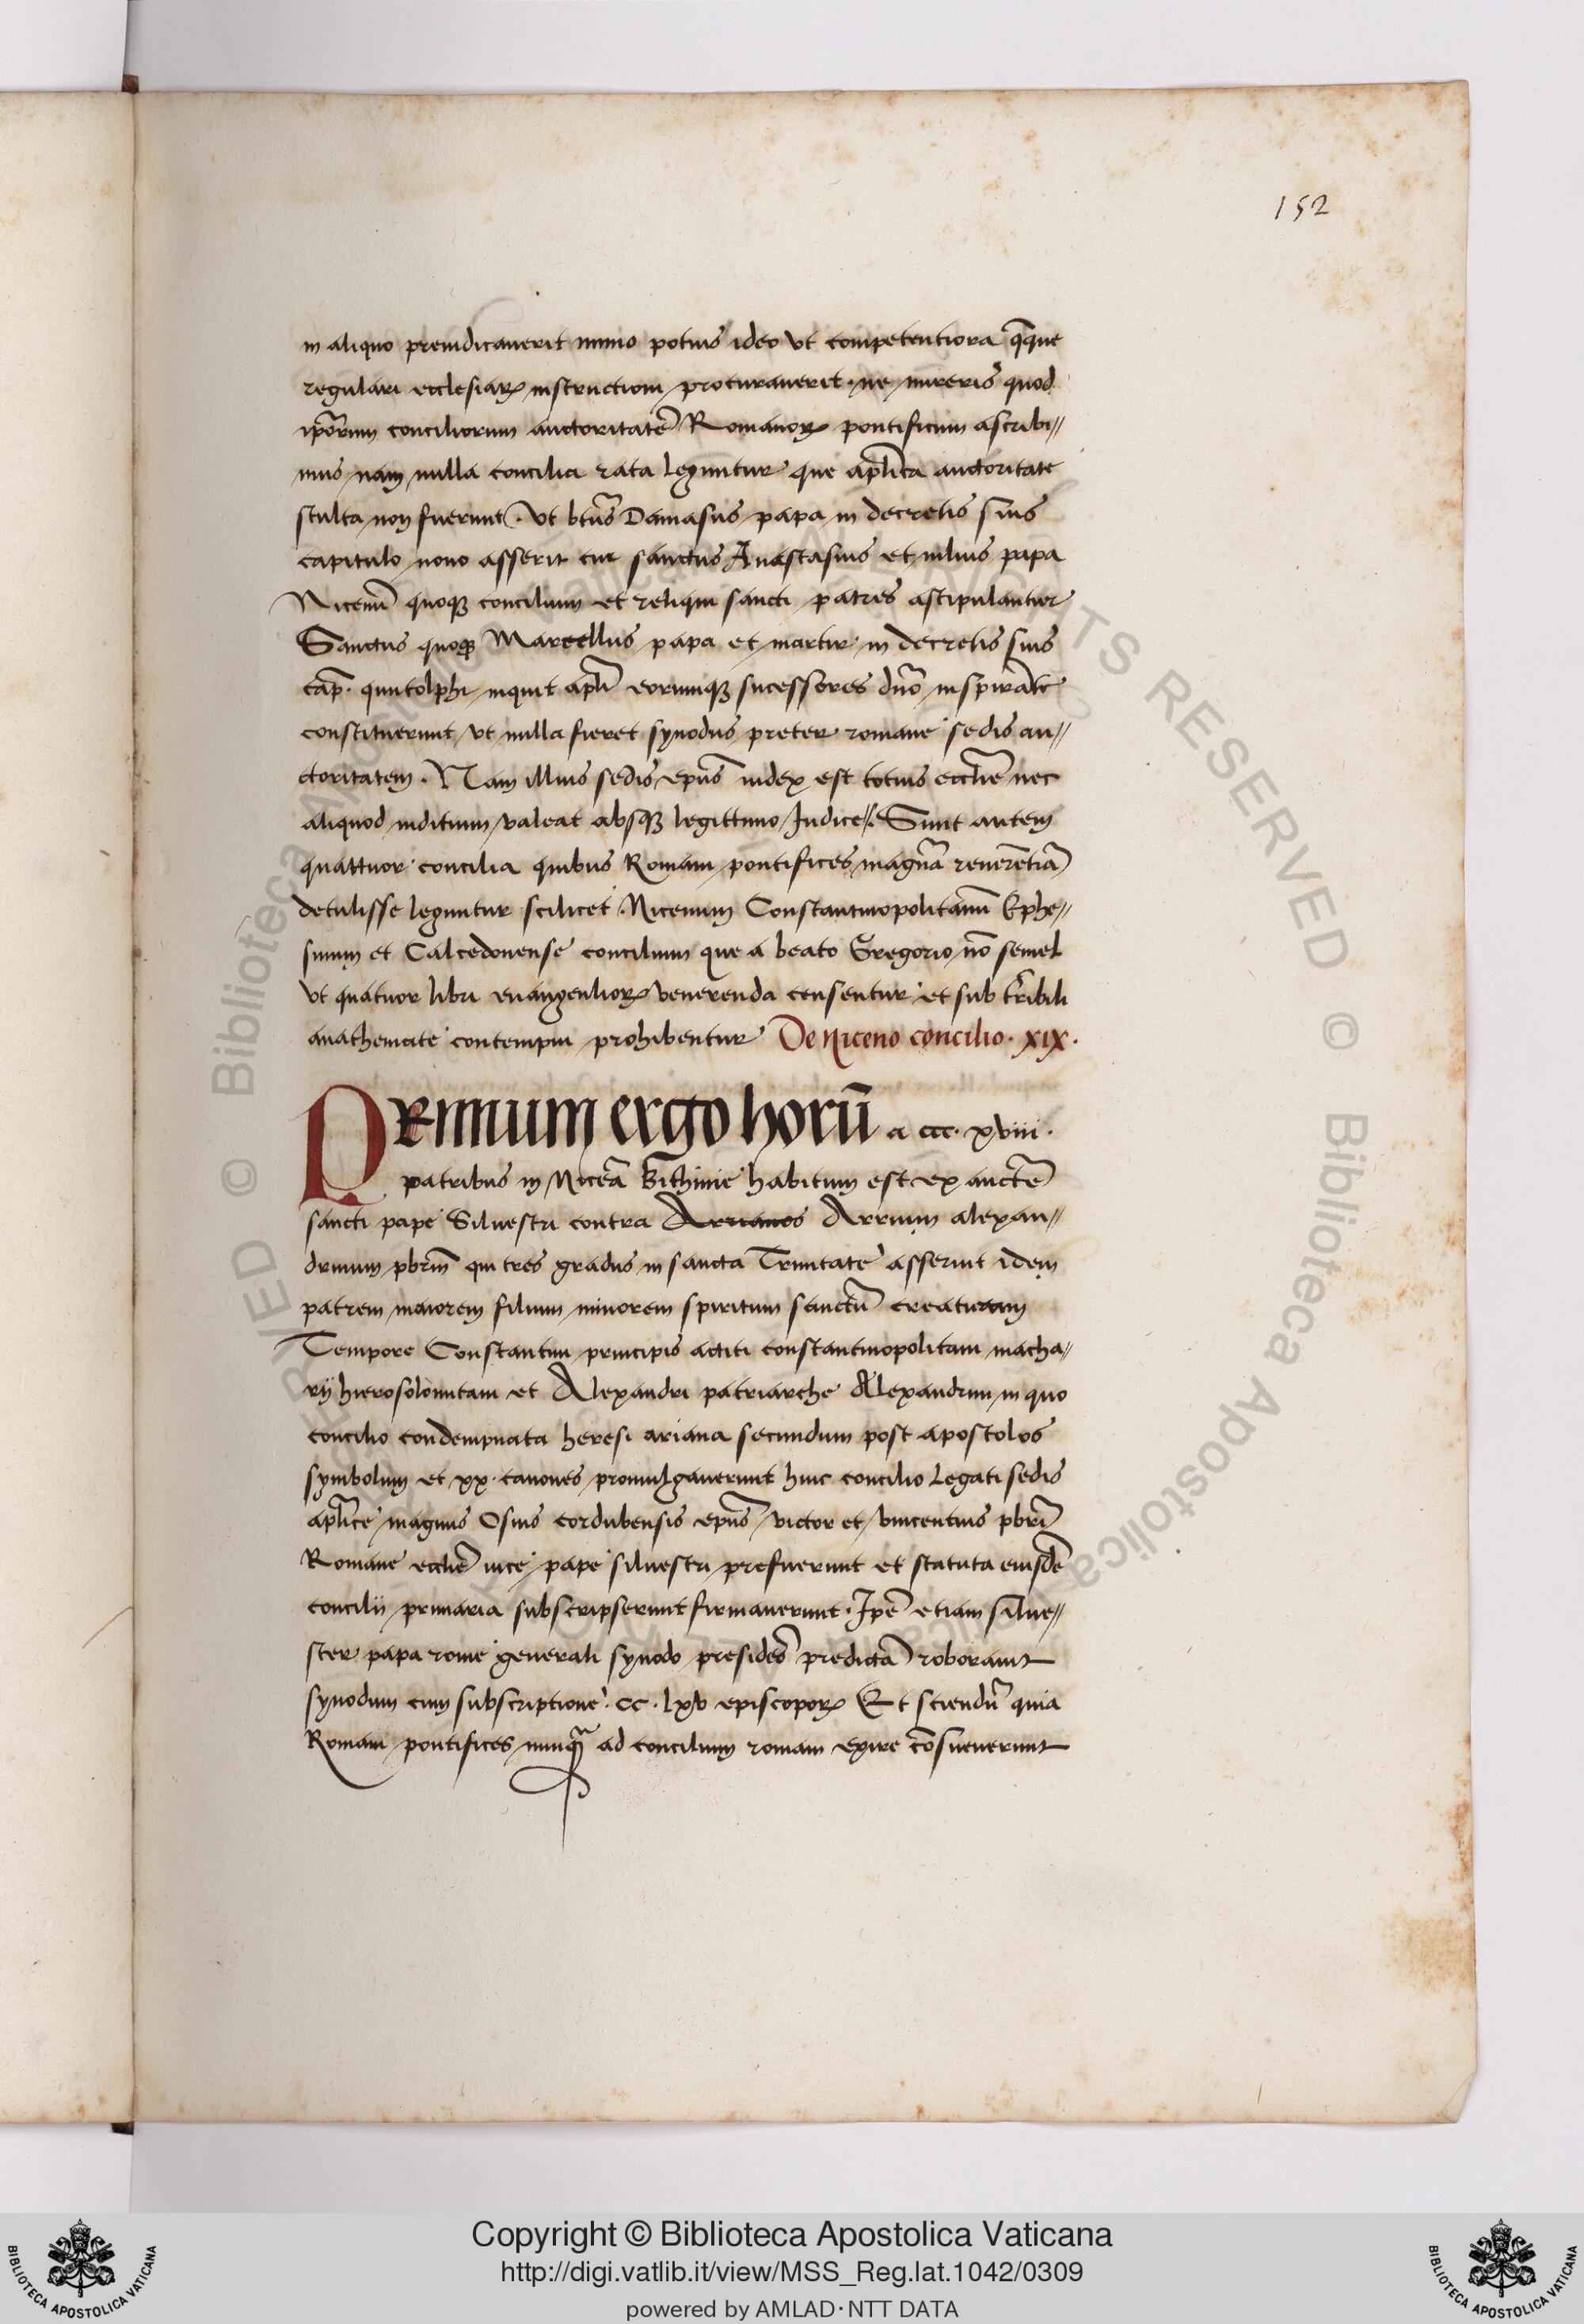 152
in aliquo preiudicauerit immo potius ideo vt competentiora q̄que
regulari ecclesiaꝝ instructioni procurauerit · ne mireris quod
ip̄orum conciliorum auctoritatē Romanoꝝ pontificum ascribi〃
mus nam nulla concilia rata leguntur que ap̄lica auctoritate
stulta non fuerunt · Vt bt̄us Damasus papa in decretis suis
capitulo nono asserit cur sanctus Anastasius et iulius papa
Nicenū quoqꝫ concilium et reliqui sancti patres astipulantur
Sanctus quoqꝫ Marcellus papa et martir in decretis suis
cap̄ · inquit ap̄li eorumqꝫ sucessores dn̄o inspirāte
constituerunt vt nulla fieret synodus preter romane sedis au〃
ctoritatem · Nam illius sedis ep̄us iudex est totius eccl̄ie nec
aliquod iuditium valeat absqꝫ legittimo Iudice · Sunt autem
quattuor concilia quibus Romani pontifices magnā reuerentiā
detulisse leguntur scilicet · Nicenum Constantinopolitanū Ephe〃
sinum et Calcedonense concilium que a beato Gregorio nō semel
vt quatuor libri euangeulioꝝ venerenda censentur et sub tr̄ibili
anathemate contempni prohibentur De niceno concilio · xix ·
PRimum ergo horū a ccc · xviii ·
patribus in Niceā Bithinie habitum est ex auctē
sancti pape Siluestri contra Arrianos Arrium alexan〃
drinum pb̄rm̄ qui tres gradus in sancta Trinitate asseruit idem
patrem maiorem filium minorem spiritum sanctū creaturam
Tempore Constantini principis actiti constantinopolitani macha〃
rij hierosolomitani et Alexandri patriarche Alexandrini in quo
concilio condempnata heresi ariana secundum post apostolos
symbolum et xx · canones promulgauerunt huic concilio legati sedis
ap̄lice magnus Osius cordubensis ep̄us victor et vincentius pb̄ri
Romane eccl̄ie uice pape siluestri prefuerunt et statuta eiusdē
concilii primaria subscripserunt firmauerunt · Ip̄e etiam silue〃
ster papa rome generali synodo presidēs predictā roborauit
synodum cum subscriptione · cc · lxv episcopoꝝ Et sciendū quia
Romani pontifices nunq̄ ad concilium romam exire cōsueuerunt
Copyright © Biblioteca Apostolica Vaticana
http://digi.vatlib.it/view/MSS_Reg.lat.1042/0309
powered by AMLAD · NTT DATA
BIBLIOTECA APOSTOLICA VATICANA
BIBLIOTECA APOSTOLICA VATICANA